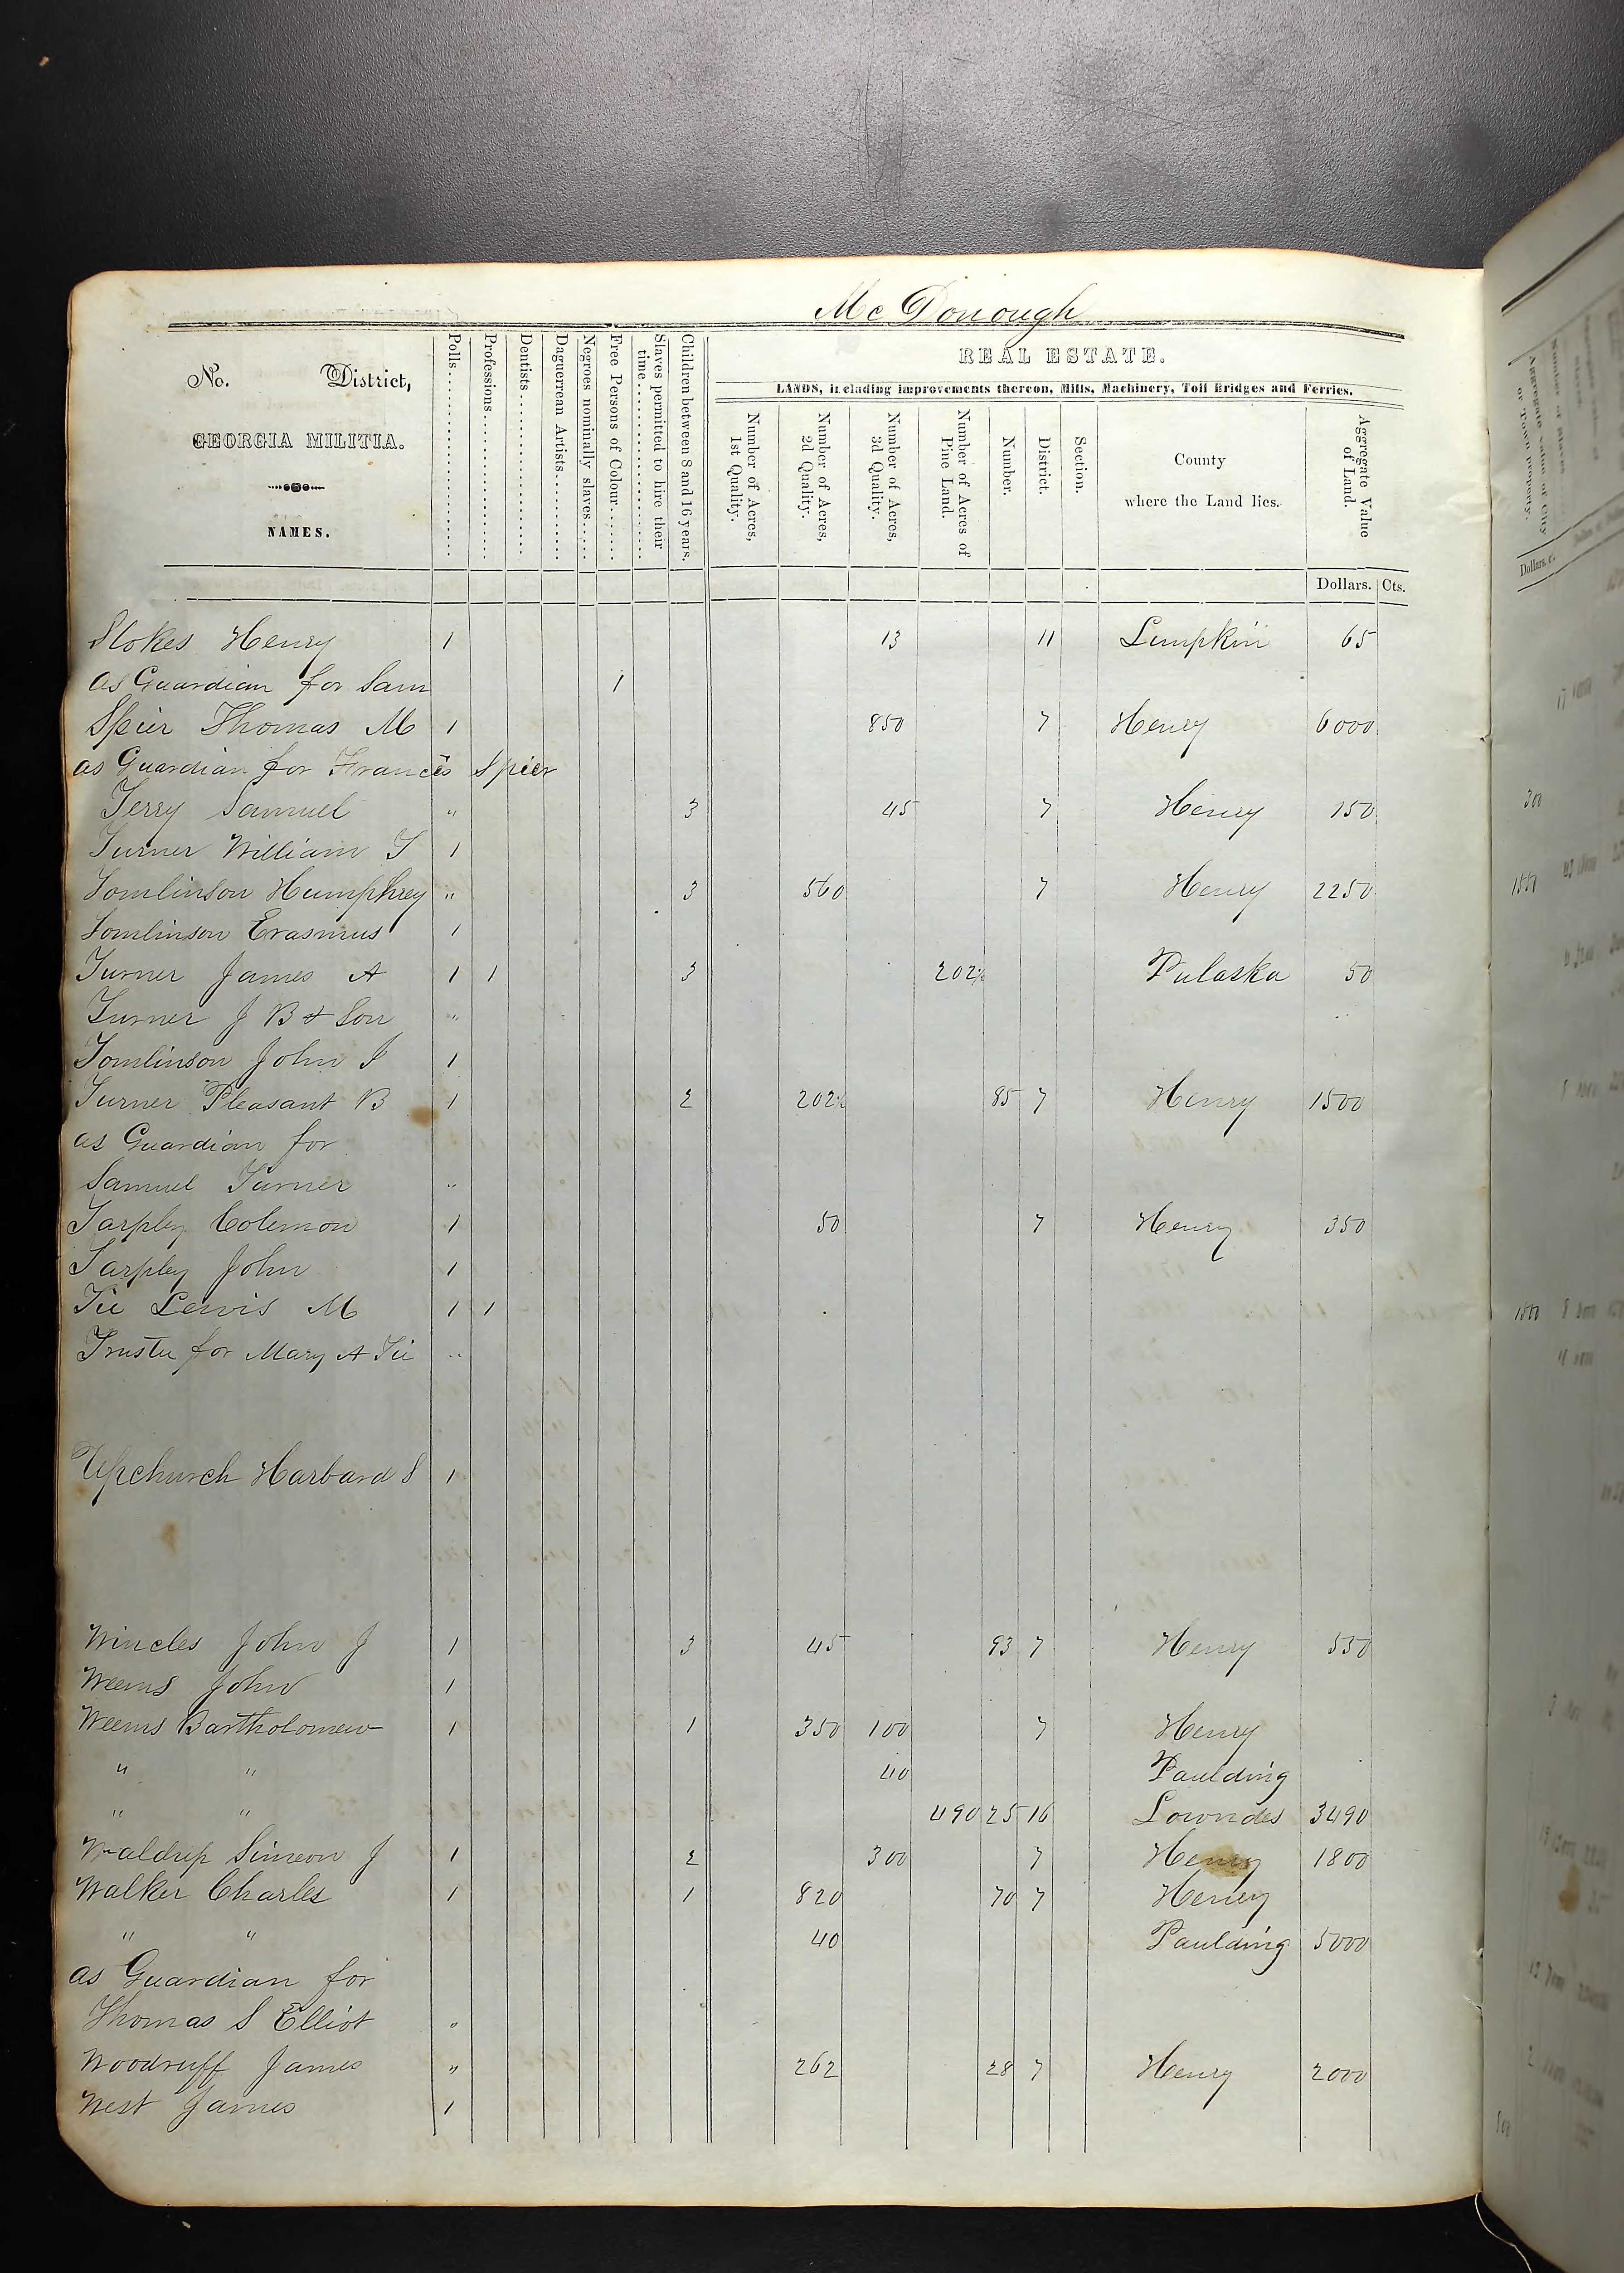 Mc Donough
No. District,
GEORGIA MILITIA.
NAMES.
Polls
Professions
Dentists
Daguerrean Artists
Negroes nominally slaves
Free Persons of Colour
Slaves permitted to hire their time
Children between 8 and 16 years.
REAL ESTATE.
LANDS, including improvements thereon, Mills, Machinery, Toll Bridges and Ferries.
Number of Acres, 1st Quality.
Number of Acres, 2d Quality.
Number of Acres, 3d Quality.
Number of Acres of Pine Land.
Number.
District.
Section.
County where the Land lies.
Aggregate Value of Land.
Dollars. Cts.
Stokes Henry 1 13 11 Lumpkin 65
as Guardian for Sam 1
Speir Thomas M 1 850 7 Henry 6000
as Guardian for Frances Speir
Terry Samuel " 3 45 7 Henry 150
Turner William T 1
Tomlinson Humphrey " 3 560 7 Henry 2250
Tomlinson Erasmus 1
Turner James A 1 1 3 202½ Pulaska 50
Turner J B & Son "
Tomlinson John I 1
Turner Pleasant B 1 2 202½ 85 7 Henry 1500
as Guardian for
Samuel Turner "
Tarpley Colemon 1 50 7 Henry 350
Tarpley John 1
Tie Lewis M 1 1
Truste for Mary A Tie "
Upchurch Harbard S 1
Wincles John J 1 3 45 93 7 Henry 550
Weems John 1
Weems Bartholomew 1 1 350 100 7 Henry
" " 40 Paulding
" " 490 25 16 Lowndes 3490
Waldrip Simeon J 1 2 300 7 Henry 1800
Walker Charles 1 1 820 70 7 Henry
" " 40 Paulding 5000
as Guardian for
Thomas S Elliot "
Woodruff James " 262 28 7 Henry 2000
West James 1